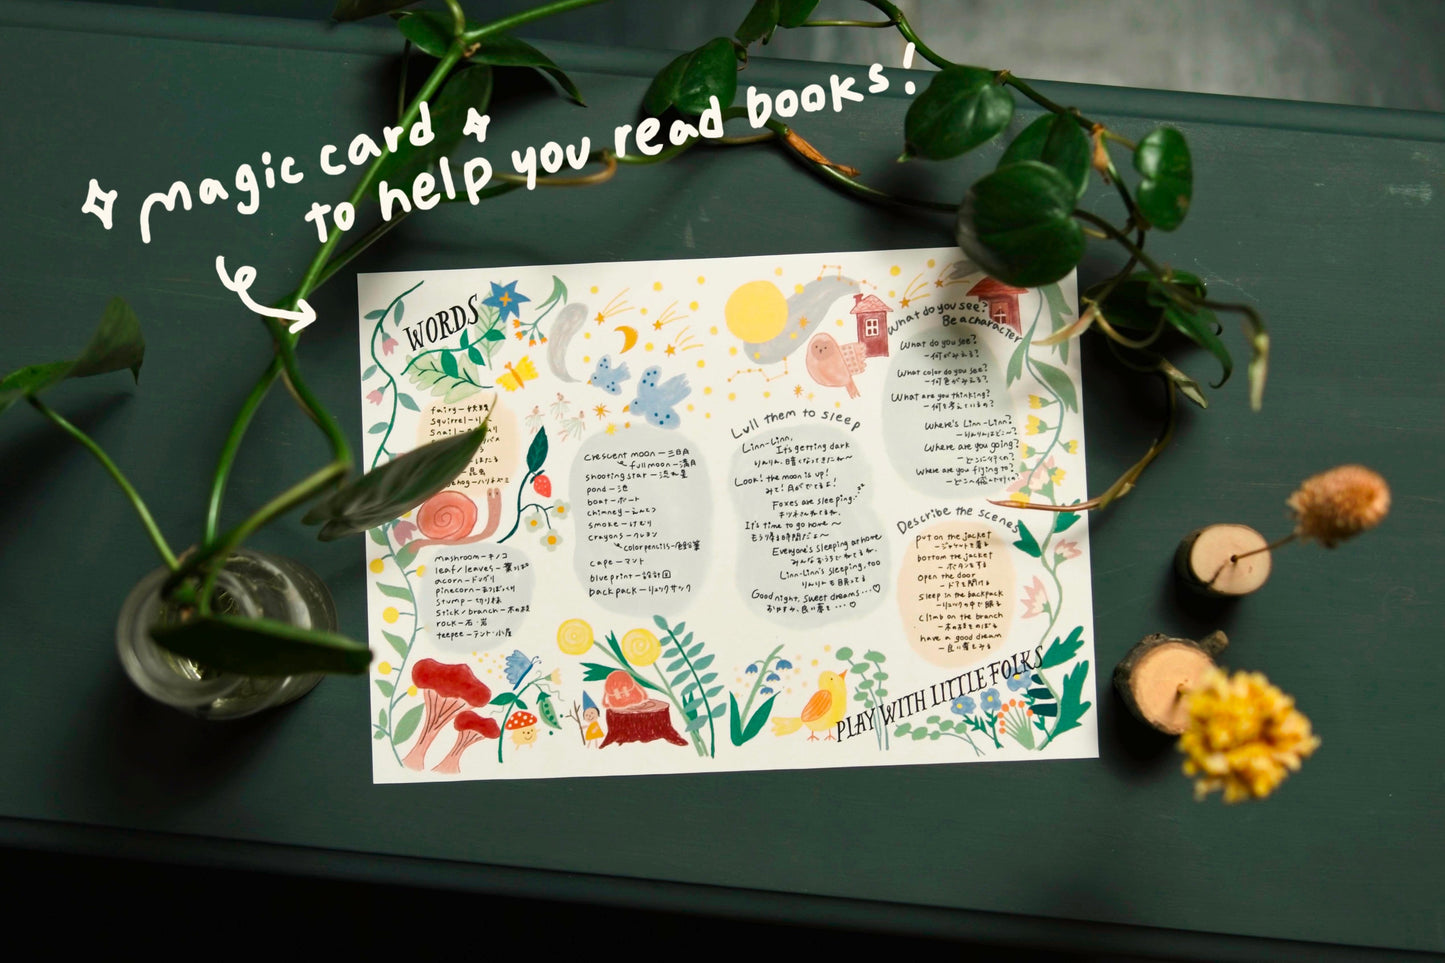 magic card
to help you read books!
WORDS
fairy－妖精
Squirrel－り
Snail－
昆虫
hog－ハリネズミ
mushroom－キノコ
leaf/leaves－葉っぱ
acorn－ドングリ
pinecone－まつぼっくり
stump－切り株
stick/branch－木の枝
rock－石・岩
teepee－テント・小屋
crescent moon－三日月
full moon－満月
shooting star－流れ星
pond－池
boat－ボート
chimney－えんとつ
smoke－けむり
crayons－クレヨン
color pencils－色鉛筆
cape－マント
blueprint－設計図
backpack－リュックサック
Lull them to sleep
Linn-Linn,
It's getting dark
りんりん、暗くなってきたね〜
Look! the moon is up!
みて！月がでてるよ！
Foxes are sleeping...
キツネさんねてるね。
It's time to go home〜
もう帰る時間だよ〜
Everyone's sleeping at home
みんなおうちでねてるね。
Linn-Linn's sleeping, too
りんりんも眠ってる
Good night, sweet dreams...♡
おやすみ、良い夢を...♡
What do you see?
Be a character
What do you see?
－何がみえる？
What color do you see?
－何色がみえる？
What are you thinking?
－何を考えているの？
Where's Linn-Linn?
－りんりんはどこー？
Where are you going?
－どこに行くの？
Where are you flying to?
－どこへ飛んで行くの？
Describe the scenes
put on the jacket
－ジャケットを着る
button the jacket
－ボタンをする
Open the door
－ドアを開ける
Sleep in the backpack
－リュックの中で眠る
Climb on the branch
－木の枝をのぼる
have a good dream
－良い夢をみる
PLAY WITH LITTLE FOLKS